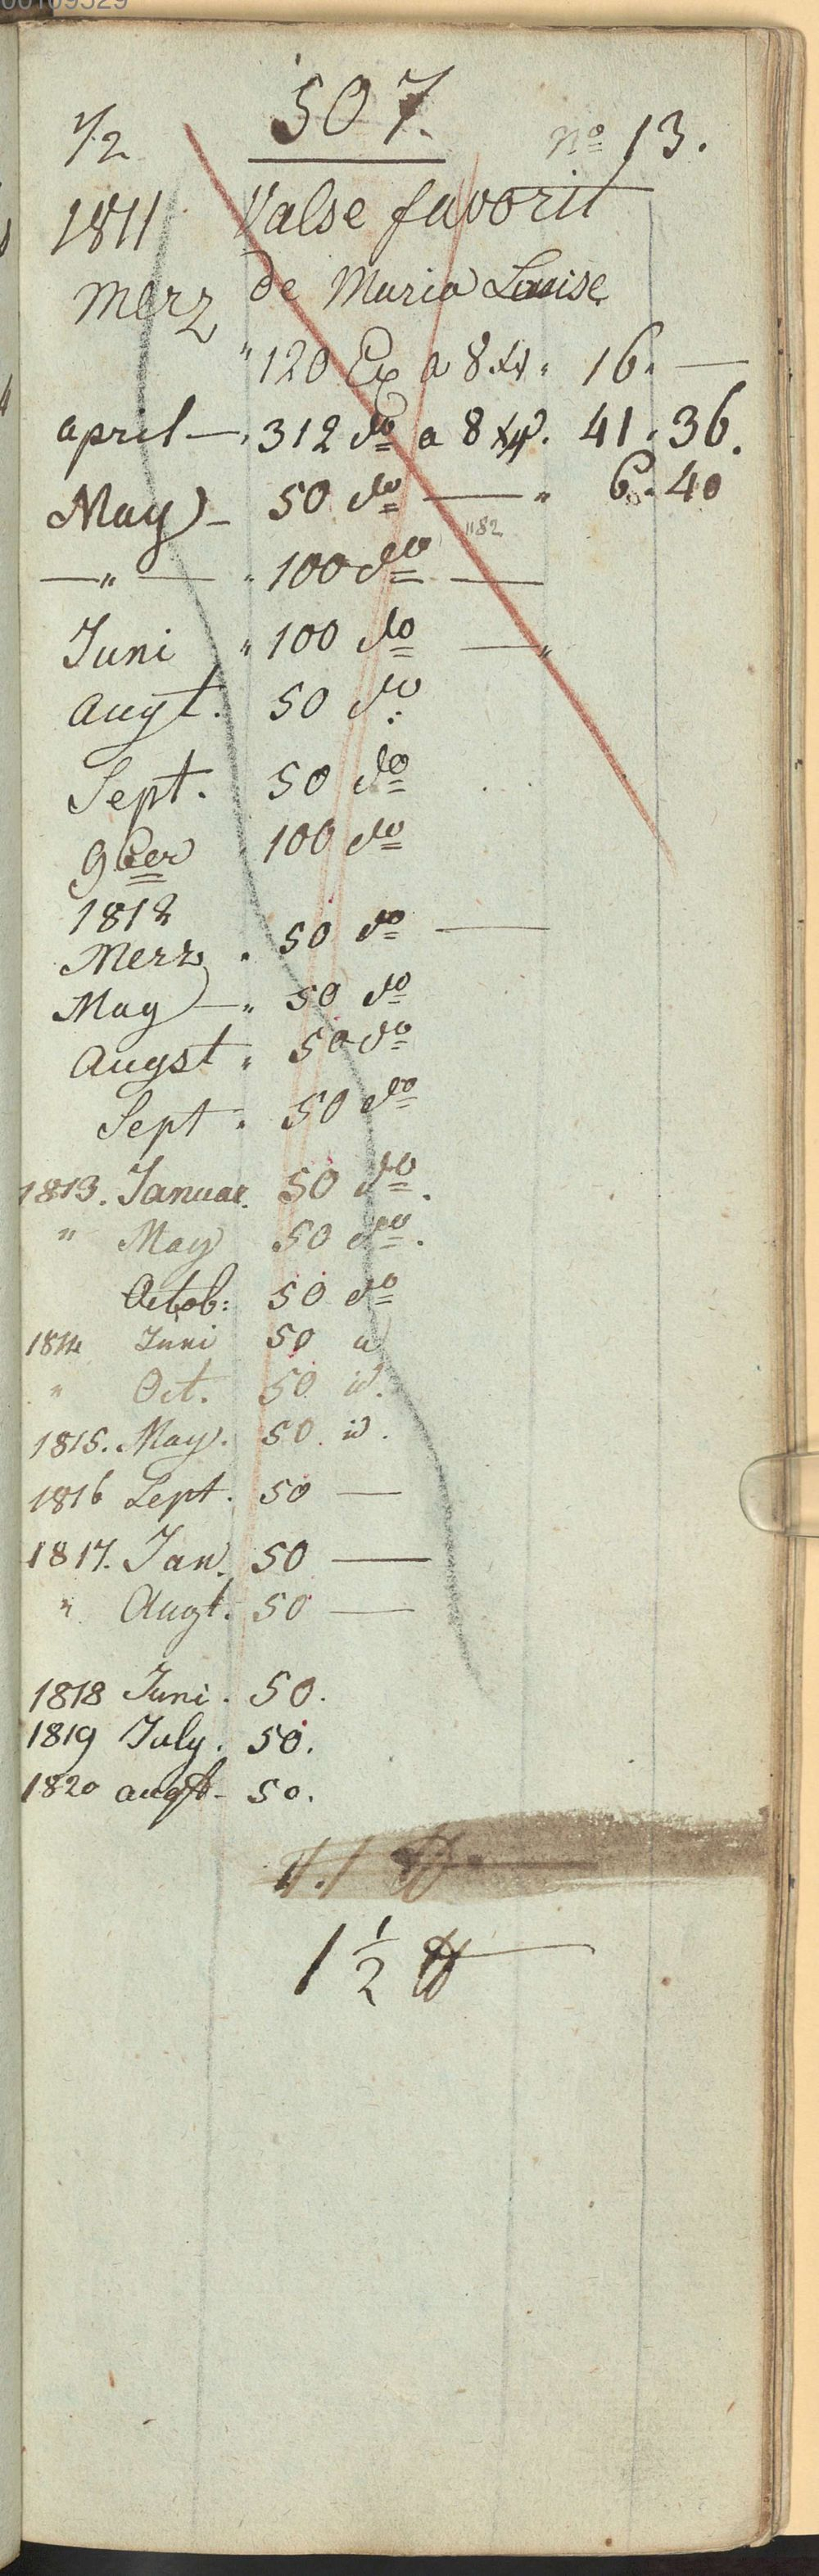 507.
1/2 No 13.
1811 Valse favorit
Merz de Maria Louise
" 120 Ex a 8 xr. 16. —
april — 312 do a 8 xr. 41. 36.
May — 50 do — " 6. 40
1182
— " — " 100 do —
Juni " 100 do — "
Augt. 50 do
Sept. 50 do
9ber 100 do
1812
Merz . 50 do —
May — " 50 do
Augst " 50 do
Sept . 50 do
1813. Januar. 50 do.
" May 50 do.
Octob: 50 do
1814 Juni 50
" Oct. 50 id.
1815. May. 50. id.
1816 Sept. 50 —
1817. Jan. 50 —
" Augt. 50 —
1818 Juni. 50.
1819 July. 50.
1820 augst - 50.
1 1/2 ℔